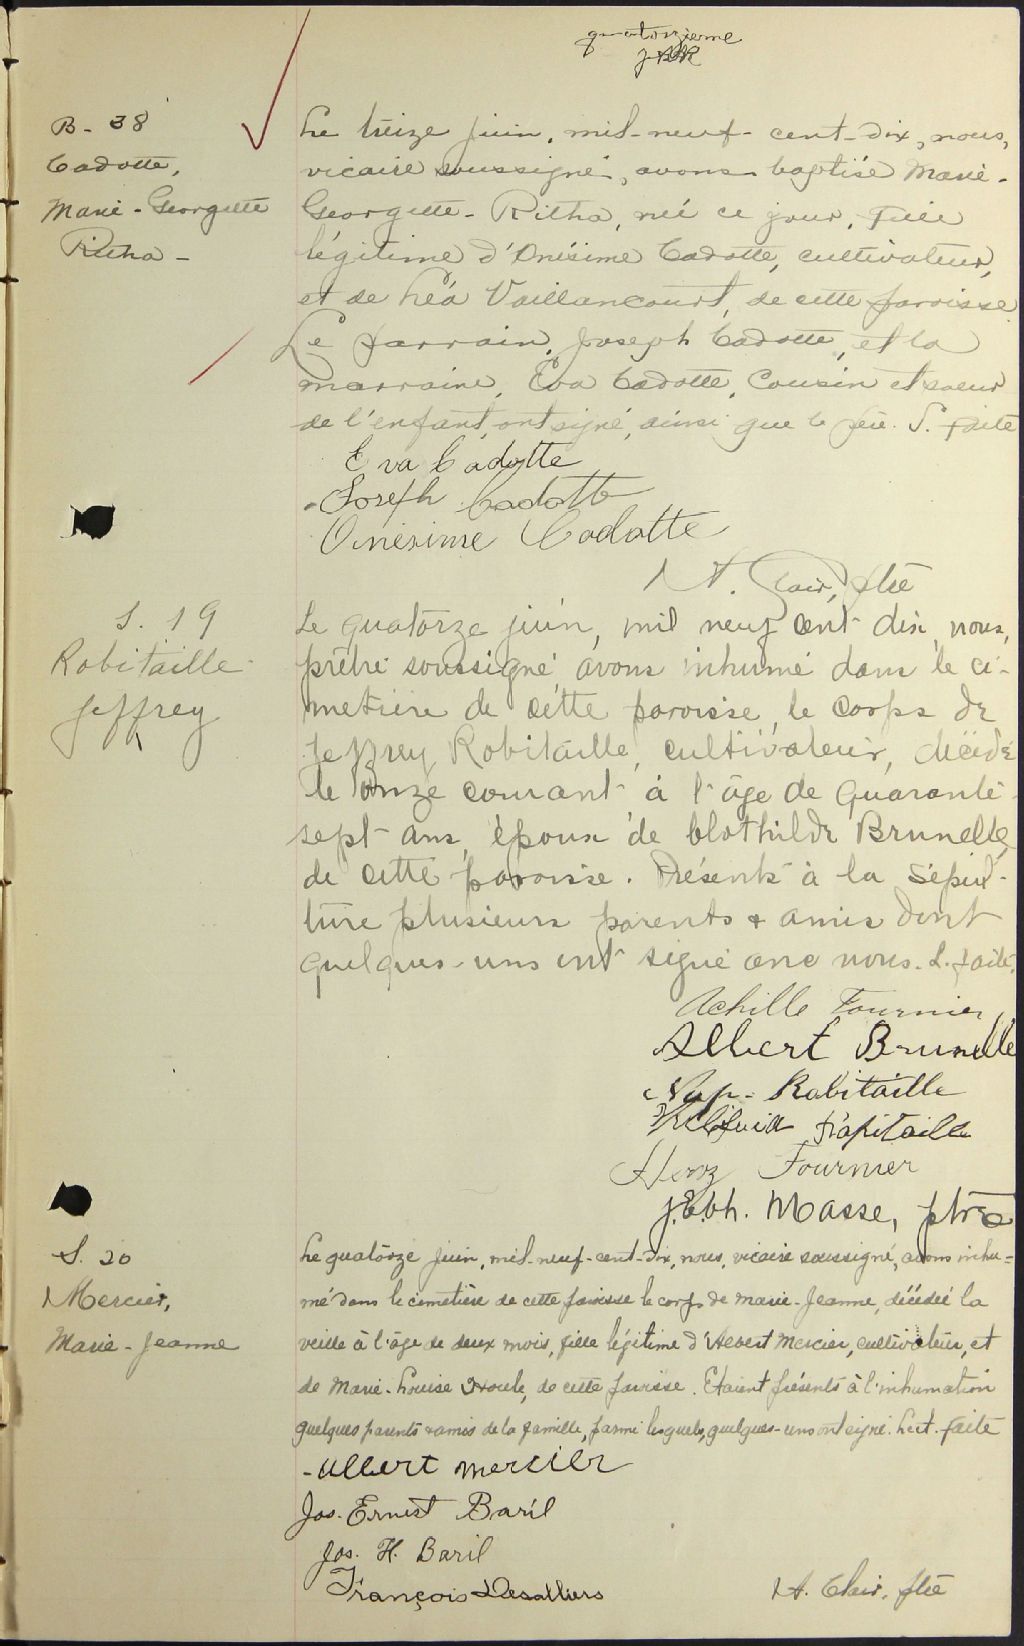 quatorzième
B- 38
Cadotte,
Marie-Georgette
Ritha-
Le treize juin, mil-neuf-cent-dix, nous,
vicaire soussigné, avons baptisé Marie-
Georgette-Ritha, née ce jour, fille
légitime d'Onésime Cadotte, cultivateur,
et de Léa Vaillancourt, de cette paroisse.
Le parrain, Joseph Cadotte, et la
marraine, Eva Cadotte, Cousin et soeur
de l'enfant, ont signé, ainsi que le père. L. faite
Eva Cadotte
Joseph Cadotte
Onésime Cadotte
A. Clair, ptre
S. 19
Robitaille
Jeffrey
Le quatorze juin, mil neuf cent dix, nous,
prêtre soussigné avons inhumé dans le ci-
metière de cette paroisse, le corps de
Jeffrey Robitaille, cultivateur, décédé
le onze courant à l'âge de quarante-
sept ans, époux de Clothilde Brunelle,
de cette paroisse. Présents à la sépul-
ture plusieurs parents & amis dont
quelques-uns ont signé avec nous. L. faite.
Achille Fournier
Albert Brunelle
Nap- Robitaille
Robitaille
Fournier
J.E.Ch. Masse, ptre
S. 20
Mercier,
Marie-Jeanne
Le quatorze juin, mil-neuf-cent-dix, nous, vicaire soussigné, avons inhu-
mé dans le cimetière de cette paroisse le corps de Marie-Jeanne, décédée la
veille à l'âge de deux mois, fille légitime d'Albert Mercier, cultivateur, et
de Marie-Louise Houle, de cette paroisse. Etaient présents à l'inhumation
quelques parents & amis de la famille, parmi lesquels, quelques-uns ont signé. Lect. faite
-Albert Mercier
Jos. Ernest Baril
Jos. H. Baril
François Desalliers
A. Clair, ptre